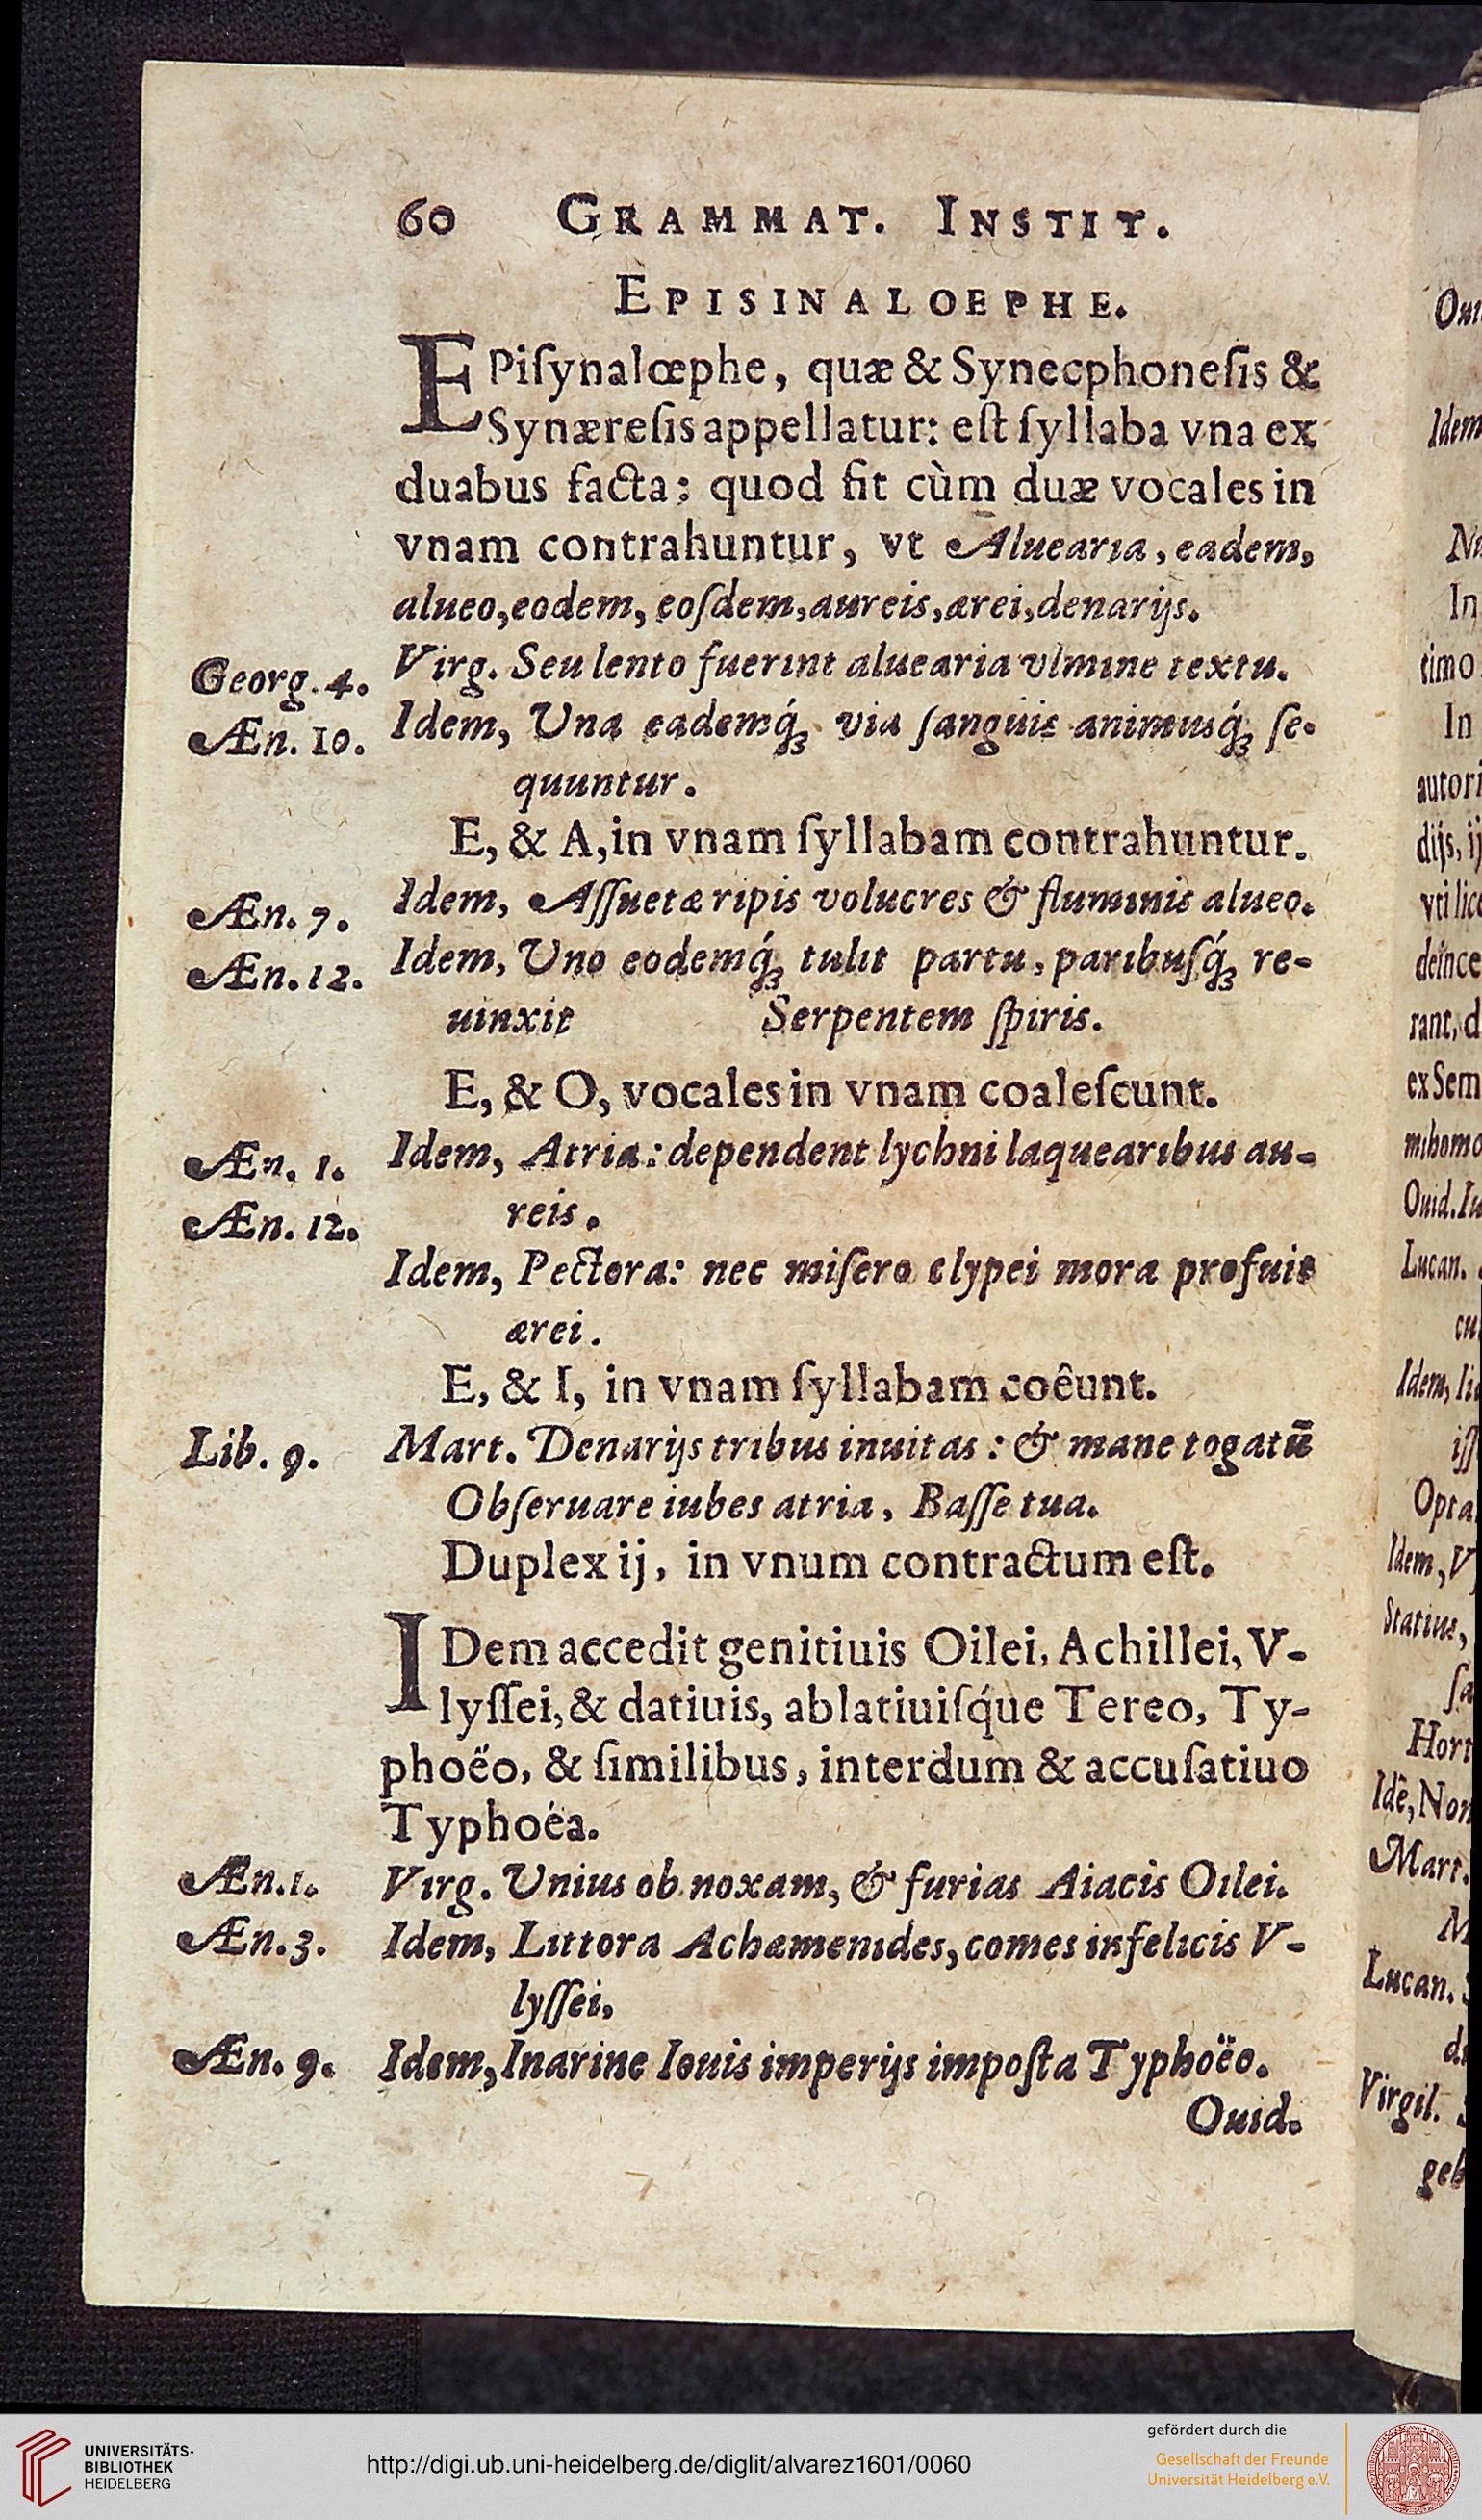 60 GRAMMAT. INSTIT.
EPISINALOEPHE.
EPiſynalœphe, quæ & Synecphoneſis &
Synæreſis appellatur: eſt ſyllaba vna ex
duabus facta; quod fit cùm duæ vocales in
vnam contrahuntur, vt Aluearia, eadem,
alueo, eodem, eoſdem, aureis, ærei, denarijs.
Georg. 4. Virg. Seu lento fuerint aluearia vlmine textu.
Æn. 10. Idem, Una eademq́ꝫ via ſanguis animusq́ꝫ ſe-
quuntur.
E, & A, in vnam ſyllabam contrahuntur.
Æn. 7. Idem, Aſſuetæ ripis volucres & fluminis alueo.
Æn. 12. Idem, Uno eodemq́ꝫ tulit partu, paribuſq́ꝫ re-
uinxit Serpentem ſpiris.
E, & O, vocales in vnam coaleſcunt.
Æn. 1. Idem, Atria: dependent lychni laquearibus au-
reis.
Æn. 12. Idem, Pectora: nec miſero clypei mora profuit
ærei.
E, & I, in vnam ſyllabam coêunt.
Lib. 9. Mart. Denarijs tribus inuitas: & mane togatū
Obſeruare iubes atria, Baſſe tua.
Duplex ij, in vnum contractum eſt.
IDem accedit genitiuis Oilei, Achillei, V-
lyſſei, & datiuis, ablatiuiſq́ue Tereo, Ty-
phoëo, & ſimilibus, interdum & accuſatiuo
Typhoëa.
Æn. 1. Virg. Unius ob noxam, & furias Aiacis Oilei.
Æn. 3. Idem, Littora Achæmenides, comes infelicis V-
lyſſei,
Æn. 9. Idem, Inarine Iouis imperijs impoſta Typhoëo.
Ouid.
Idem
In
timo
In
Lucan.
Statius,
Mart.
Lucan.
Virgil.
UNIVERSITÄTS-
BIBLIOTHEK
HEIDELBERG
http://digi.ub.uni-heidelberg.de/diglit/alvarez1601/0060
gefördert durch die
Gesellschaft der Freunde
Universität Heidelberg e.V.